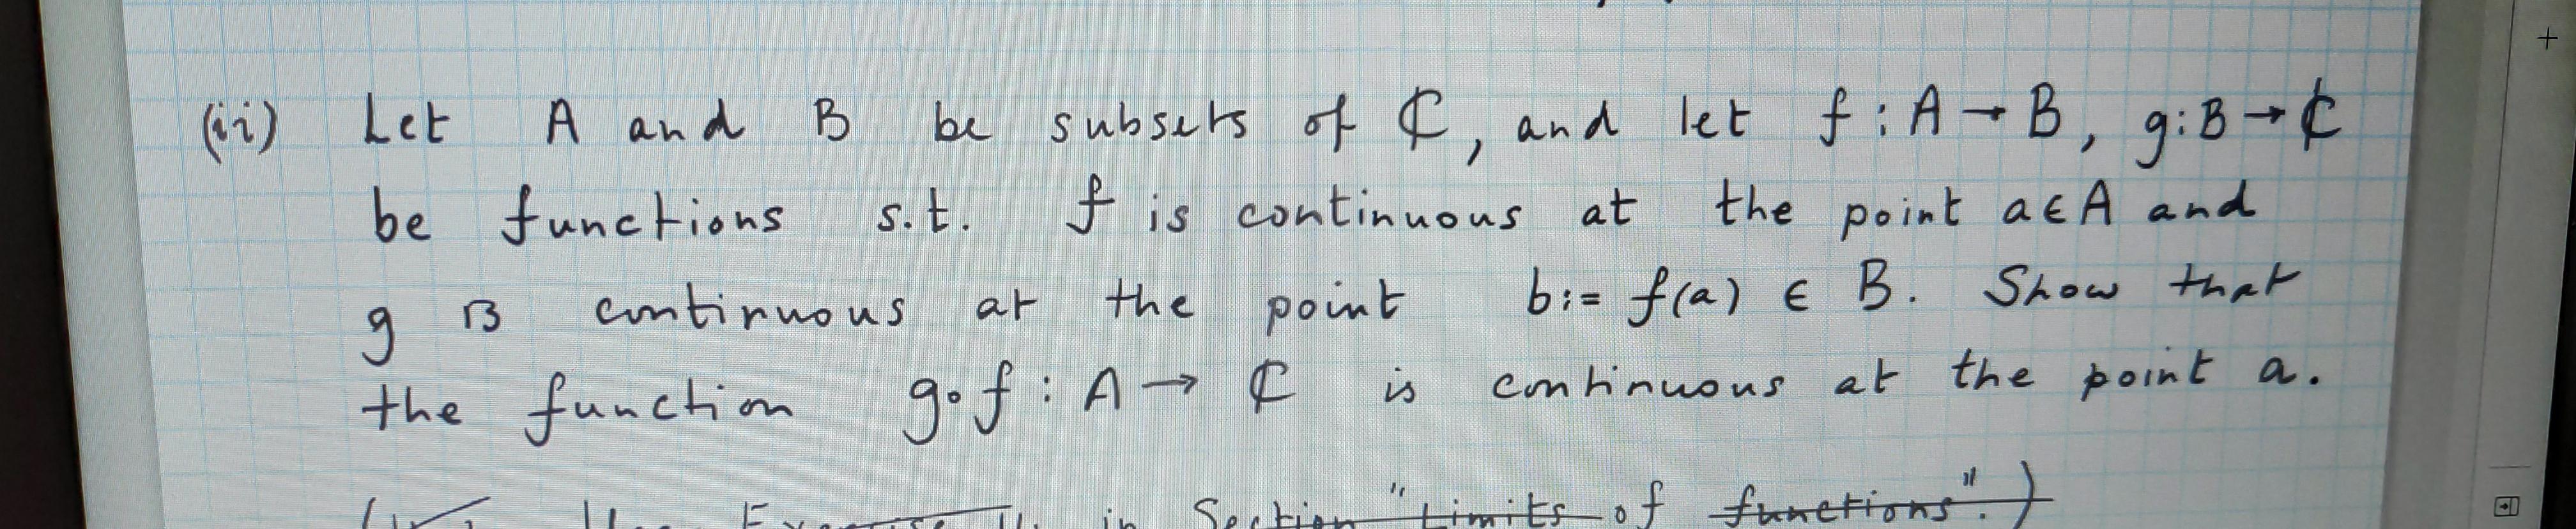 (ii) Let A and B be subsets of ℂ, and let f : A → B, g : B → ℂ
be functions s.t. f is continuous at the point a ∈ A and
g is continuous at the point b := f(a) ∈ B. Show that
the function g∘f : A → ℂ is continuous at the point a.
in Section "Limits of functions".)